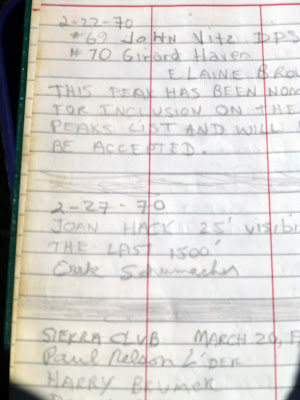 2-22-70
#69 JOHN Vitz DPS
#70 Girard Haven
ELAINE BROW
THIS PEAK HAS BEEN NOM
FOR INCLUSION ON THE
PEAKS LIST AND WILL
BE ACCEPTED.
2-27-70
JOAN HACK 25' visibi
THE LAST 1500'
Erik Schumacher
SIERRA CLUB MARCH 20, F
Paul Nelson L'DER
HARRY